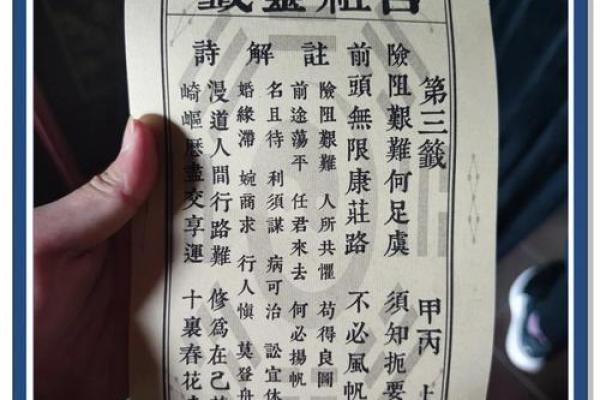 呂祖靈籤
第三籤 甲丙 上
險阻艱難何足虞 須知扼要
前頭無限康莊路 不必風帆
註解詩
險阻艱難 人所共懼 苟得良圖
前途蕩平 任君來去 何必揚帆
名且待 利須謀 病可治 訟宜休
婚緣滯 婉商求 行人愼 莫登舟
漫道人間行路難 修爲在己
崎嶇歷盡交享運 十裏春花